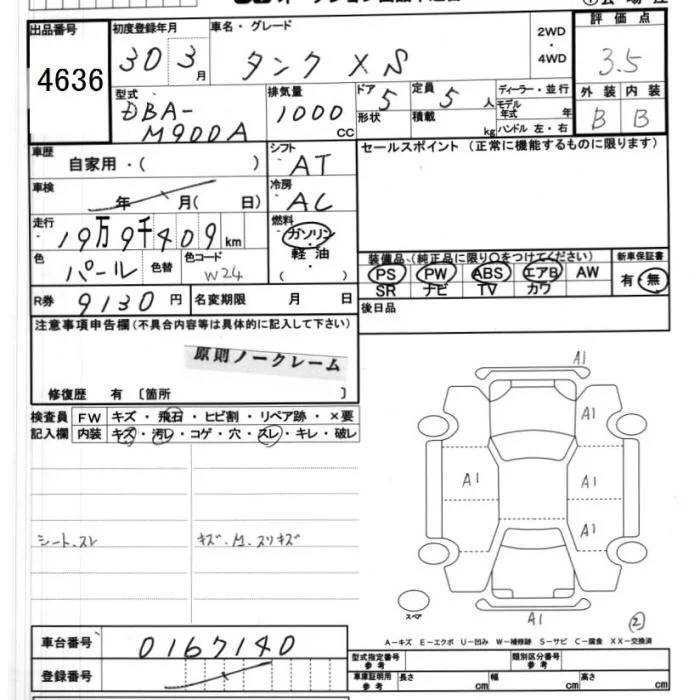 出品番号 初度登録年月 車名・グレード 2WD・4WD 評価点
4636 30 3月 タンク XS 3.5
型式 排気量 ドア 定員 ディーラー・並行 外装 内装
DBA- 1000 5 5人 モデル年式 年 B B
M900A CC 形状 積載 kg ハンドル 左・右
車歴 シフト セールスポイント (正常に機能するものに限ります)
自家用・( ) AT
車検 冷房
年 月( 日) AC
走行 燃料
19万9千409km ガソリン
色 色替 色コード 軽油 装備品 (純正品に限り○をつけてください) 新車保証書
パール W24 ( ・ ) PS PW ABS エアB AW 有・無
SR ナビ TV カワ
R券 9130円 名変期限 月 日 後日品
注意事項申告欄 (不具合内容等は具体的に記入して下さい)
原則ノークレーム
修復歴 有 〔箇所 〕
検査員 FW キズ・飛石・ヒビ割・リペア跡・×要
記入欄 内装 キズ・汚レ・コゲ・穴・スレ・キレ・破レ
A1
A1
A1 A1
A1
シート、スレ キズ、
スリキズ
スペア A1 2
A-キズ E-エクボ U-凹み W-補修跡 S-サビ C-腐食 XX-交換済
車台番号 0167140
型式指定番号 参考 類別区分番号 参考
登録番号
車庫証明用 参考 長さ cm 幅 cm 高さ cm